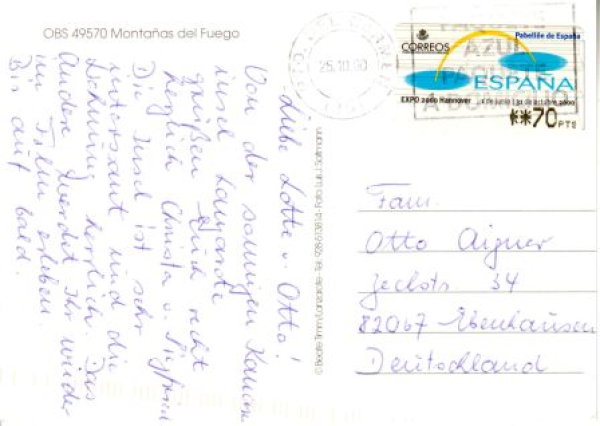 OBS 49570 Montañas del Fuego
Liebe Lotte u. Otto!
Von der sonnigen Kanaren
insel Lanzarote
grüßen Euch recht
herzlich Christa u. Siegfried
Die Insel ist sehr
interessant und die
herrlich. Das
Andre werdet Ihr wieder
im Film erleben.
Bis auf bald.
© Beate Timm Lanzarote - Tel. 928-513814 - Foto Luis J. Soltmann
25.10.00
PAQUETE
AZUL
PAQUETE
A DOMICILIO
CORREOS
Pabellón de España
ESPAÑA
EXPO 2000 Hannover 1 de junio | 31 de octubre 2000
**70 PTS
Fam.
Otto Aigner
34
82067 Ebenhausen
Deutschland